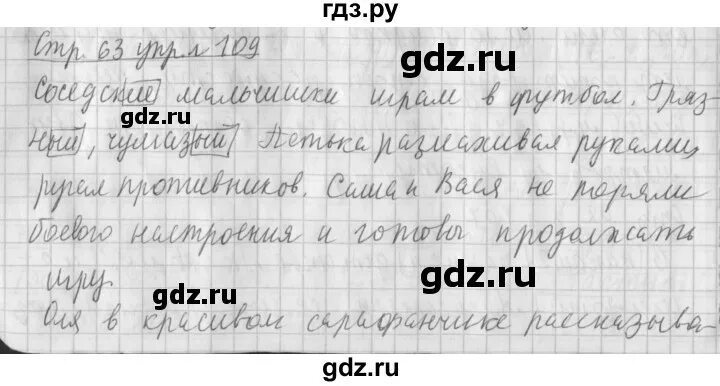 гдз.ру
Стр. 63 упр. 109
gdz.ru
Соседские мальчишки играли в футбол. Гряз-
gdz.ru
ный, чумазый Петька размахивал руками,
gdz.ru
ругал противников. Саша и Вася не теряли
боевого настроения и готовы продолжать
gdz.ru
игру.
gdz.ru
Оля в красивом сарафанчике рассказыва-
gdz.ru